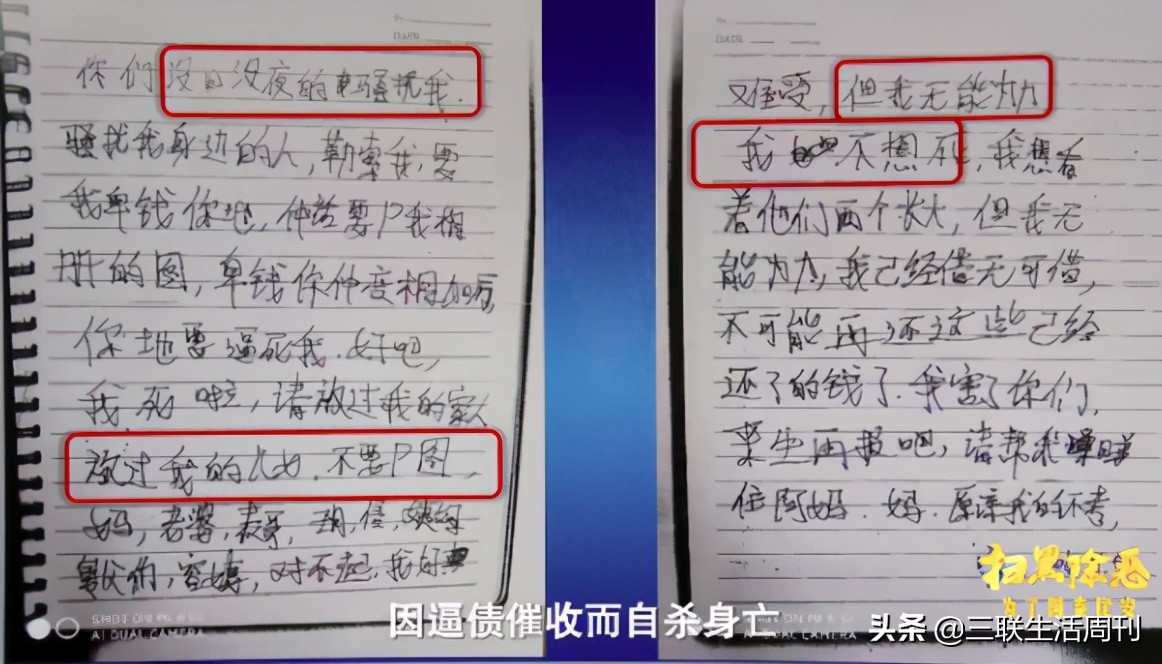 你们没日没夜的骚扰我.
骚扰我身边的人,勒索我,要
我卑钱你地,仲话要P我相
册的图,卑钱你仲变相加厉,
你地要逼死我.好吧,
我死啦,请放过我的家人
放过我的儿女.不要P图,
妈,老婆,表哥,
舅父们,容婶,对不起.我好
难受,但我无能为力
我 不想死,我想看
着他们两个长大,但我无
能为力,我己经借无可借,
不可能再还这些己经
还了的钱了.我害了你们,
来生再报吧,请帮我
住阿妈.妈.原谅我的不孝,
SHOT ON MI
AI DUAL CAMERA
因逼债催收而自杀身亡
扫黑除恶
为了国泰民安
头条 @三联生活周刊